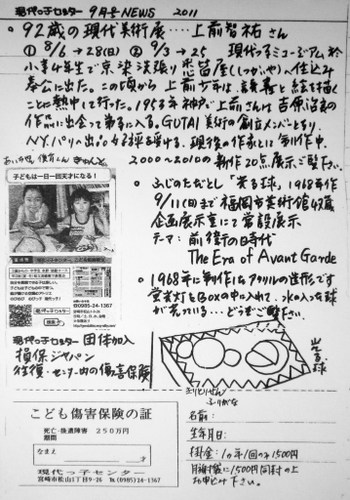 現代っ子センター 9月号NEWS 2011
○92歳の現代美術展…上前智祐さん
① 8/6→28(日) ② 9/3→25 現代っ子ミュージアム於
小学4年生で京染洗張り 悉皆屋(しつがや)へ仕込み
奉公に出た。この頃から上前少年は、読書と絵を描く
ことに熱中して行った。1953年神戸、上前さんは吉原治良の
作品に出会って弟子に入る。GUTAI美術の創立メンバーとなり、
NY.パリへ出品、好評を得る。現役の作家として制作中。
2000〜2010の新作20点展示、ご覧下さい。
子どもは一日一回天才になる!
(0985)24-1367
○ふじのただとし 「光る球」1968年作
9/11(日)まで福岡市美術館収蔵
企画展示室にて常設展示
テーマ: 前衛の時代
The Era of Avant Garde
○1968年に制作したアクリルの造形です
蛍光灯をBoxの中に入れて、水の入った球
が光っている…どうぞご覧下さい。
光る球
現代っ子センター 団体加入
損保ジャパン
往復・センター内の傷害保険
きりとりせん
ふりがな
こども傷害保険の証
死亡・後遺障害 250万円
期間
なまえ
才
現代っ子センター
宮崎市松山1丁目9-26 Tel.(0985)24-1367
名前:
生年月日:
掛金: 1o年1回のみ1500円
月謝袋に1500円同封の上
お申込み下さい。